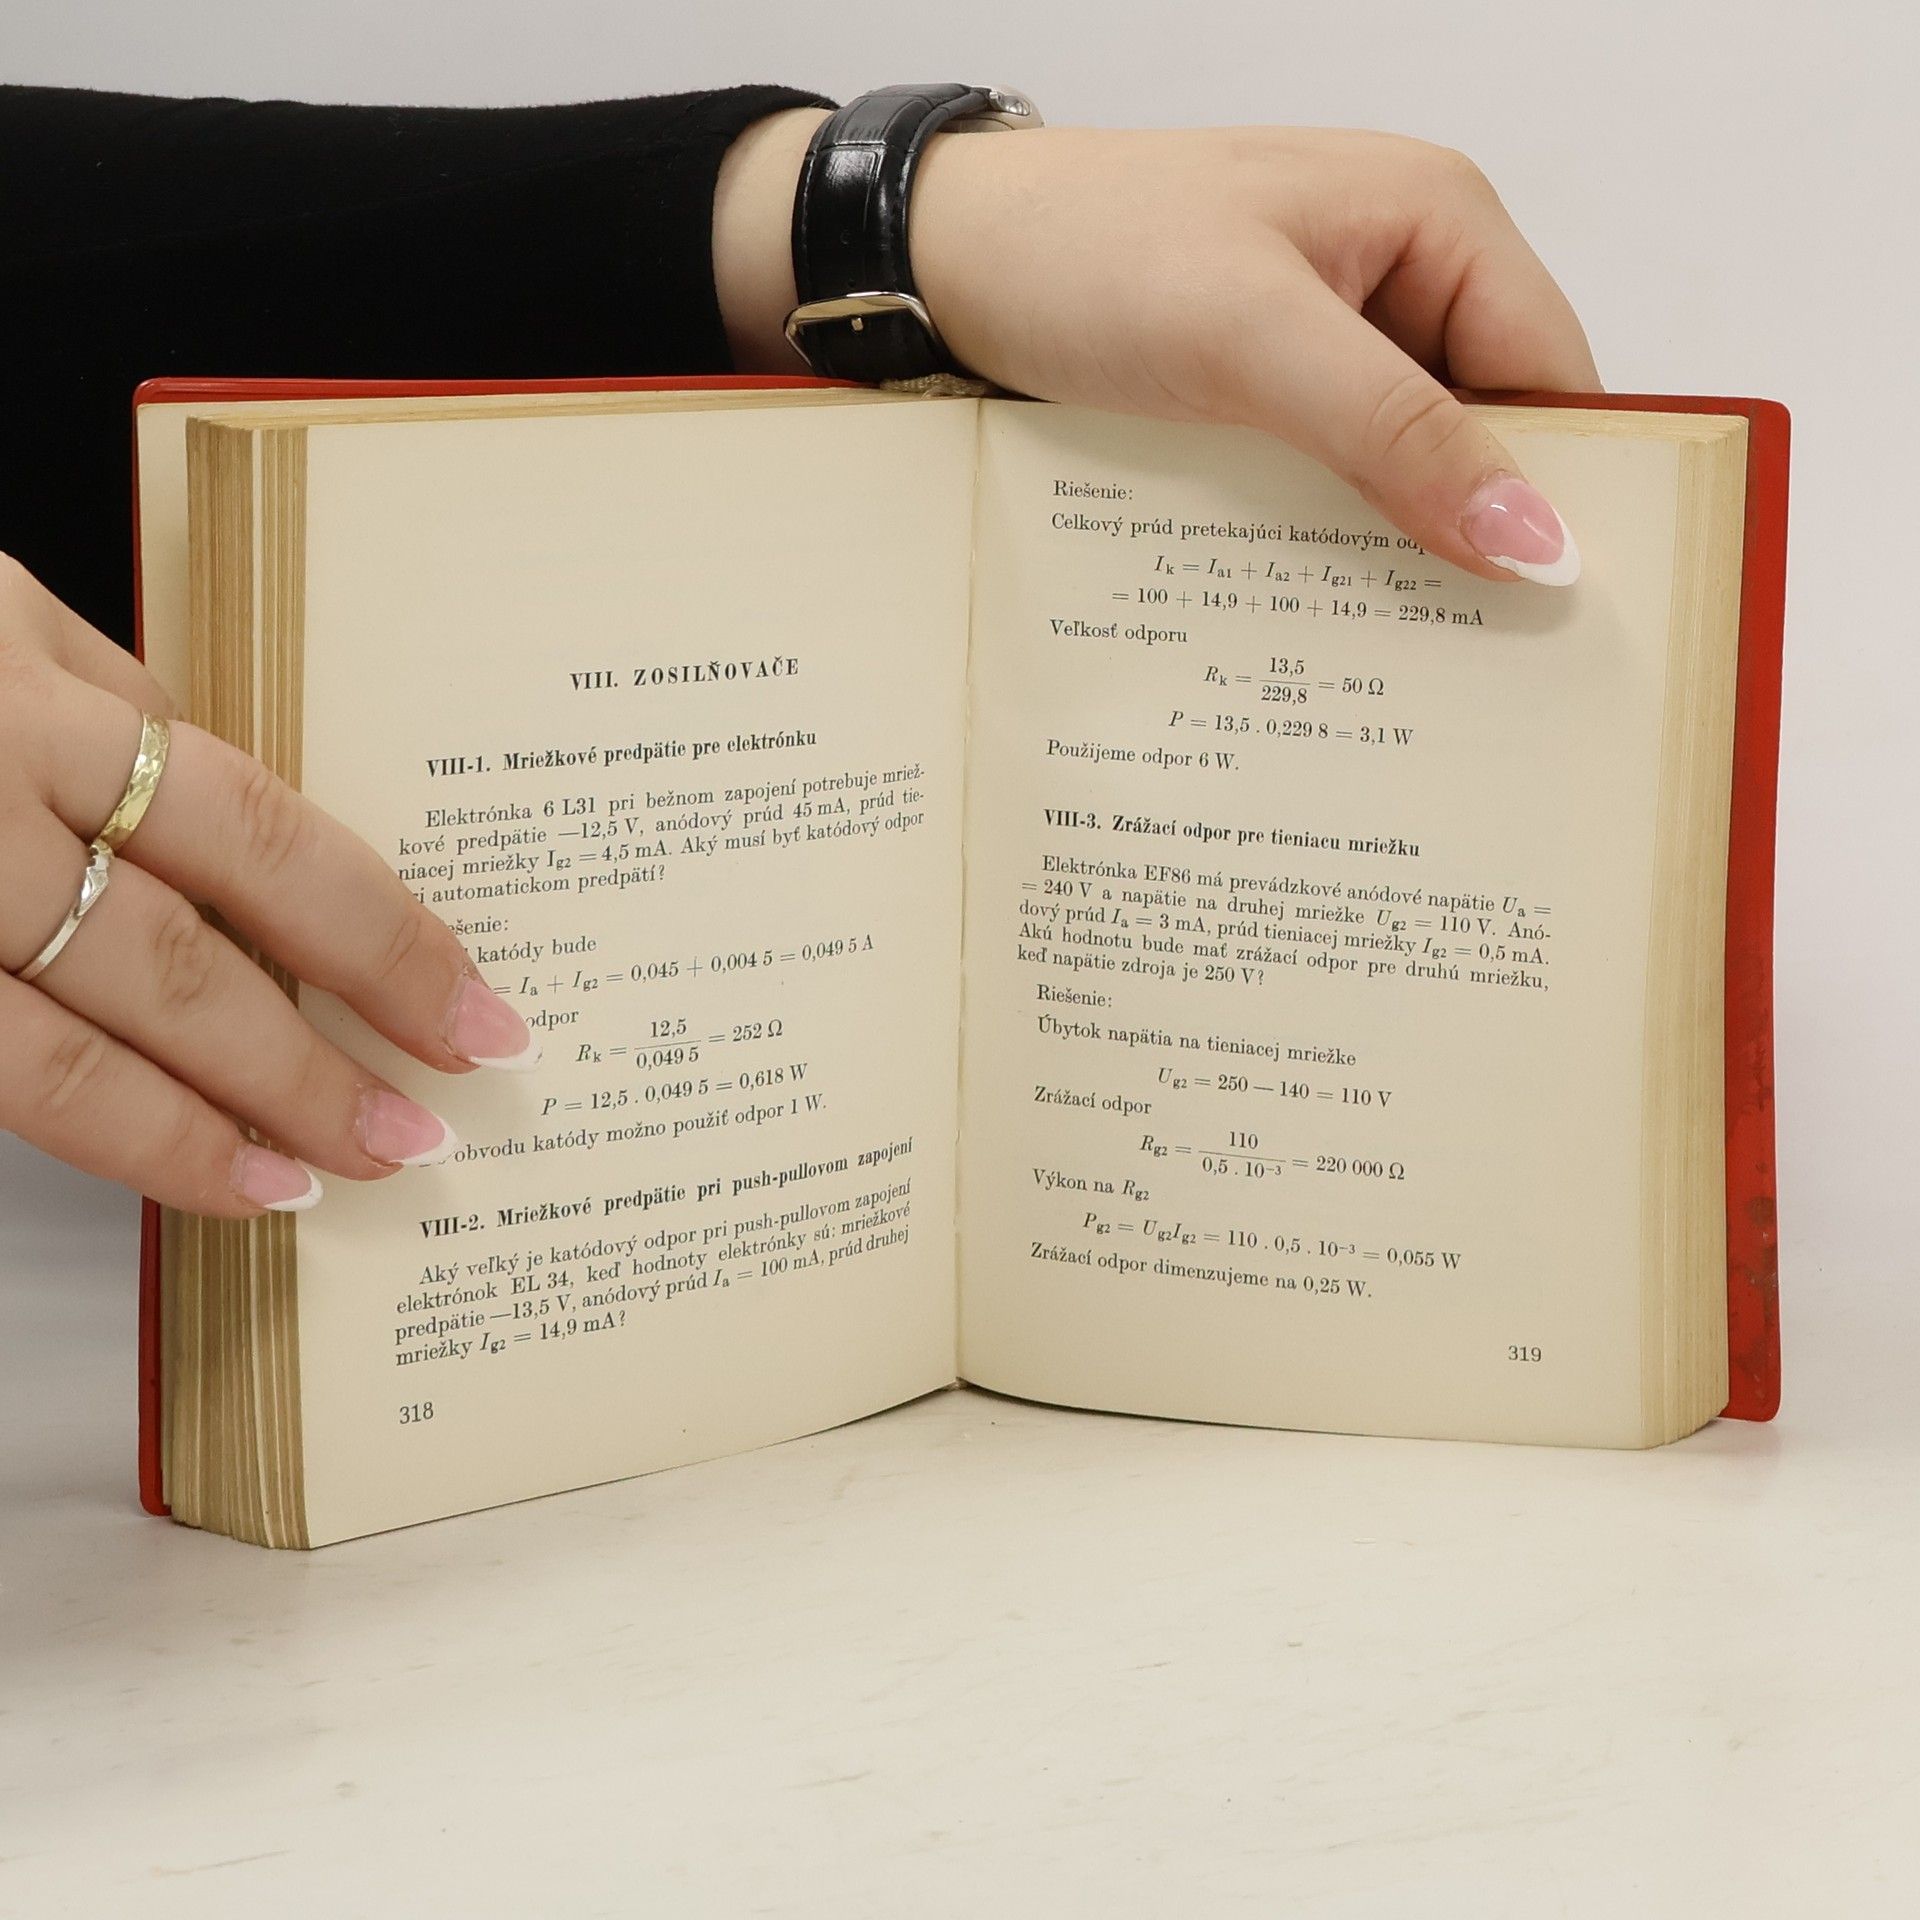 VIII. ZOSILŇOVAČE
VIII-1. Mriežkové predpätie pre elektrónku
Elektrónka 6 L31 pri bežnom zapojení potrebuje mriež-
kové predpätie —12,5 V, anódový prúd 45 mA, prúd tie-
niacej mriežky Ig2 = 4,5 mA. Aký musí byť katódový odpor
automatickom predpätí?
katódy bude
= Ia + Ig2 = 0,045 + 0,004 5 = 0,049 5 A
odpor
Rk = 12,5 / 0,049 5 = 252 Ω
P = 12,5 . 0,049 5 = 0,618 W
obvodu katódy možno použiť odpor 1 W.
VIII-2. Mriežkové predpätie pri push-pullovom zapojení
Aký veľký je katódový odpor pri push-pullovom zapojení
elektrónok EL 34, keď hodnoty elektrónky sú: mriežkové
predpätie —13,5 V, anódový prúd Ia = 100 mA, prúd druhej
mriežky Ig2 = 14,9 mA?
318
Riešenie:
Celkový prúd pretekajúci katódovým
Ik = Ia1 + Ia2 + Ig21 + Ig22 =
= 100 + 14,9 + 100 + 14,9 = 229,8 mA
Veľkosť odporu
Rk = 13,5 / 229,8 = 50 Ω
P = 13,5 . 0,229 8 = 3,1 W
Použijeme odpor 6 W.
VIII-3. Zrážací odpor pre tieniacu mriežku
Elektrónka EF86 má prevádzkové anódové napätie Ua =
= 240 V a napätie na druhej mriežke Ug2 = 110 V. Anó-
dový prúd Ia = 3 mA, prúd tieniacej mriežky Ig2 = 0,5 mA.
Akú hodnotu bude mať zrážací odpor pre druhú mriežku,
keď napätie zdroja je 250 V?
Riešenie:
Úbytok napätia na tieniacej mriežke
Ug2 = 250 — 140 = 110 V
Zrážací odpor
Rg2 = 110 / 0,5 . 10⁻³ = 220 000 Ω
Výkon na Rg2
Pg2 = Ug2Ig2 = 110 . 0,5 . 10⁻³ = 0,055 W
Zrážací odpor dimenzujeme na 0,25 W.
319